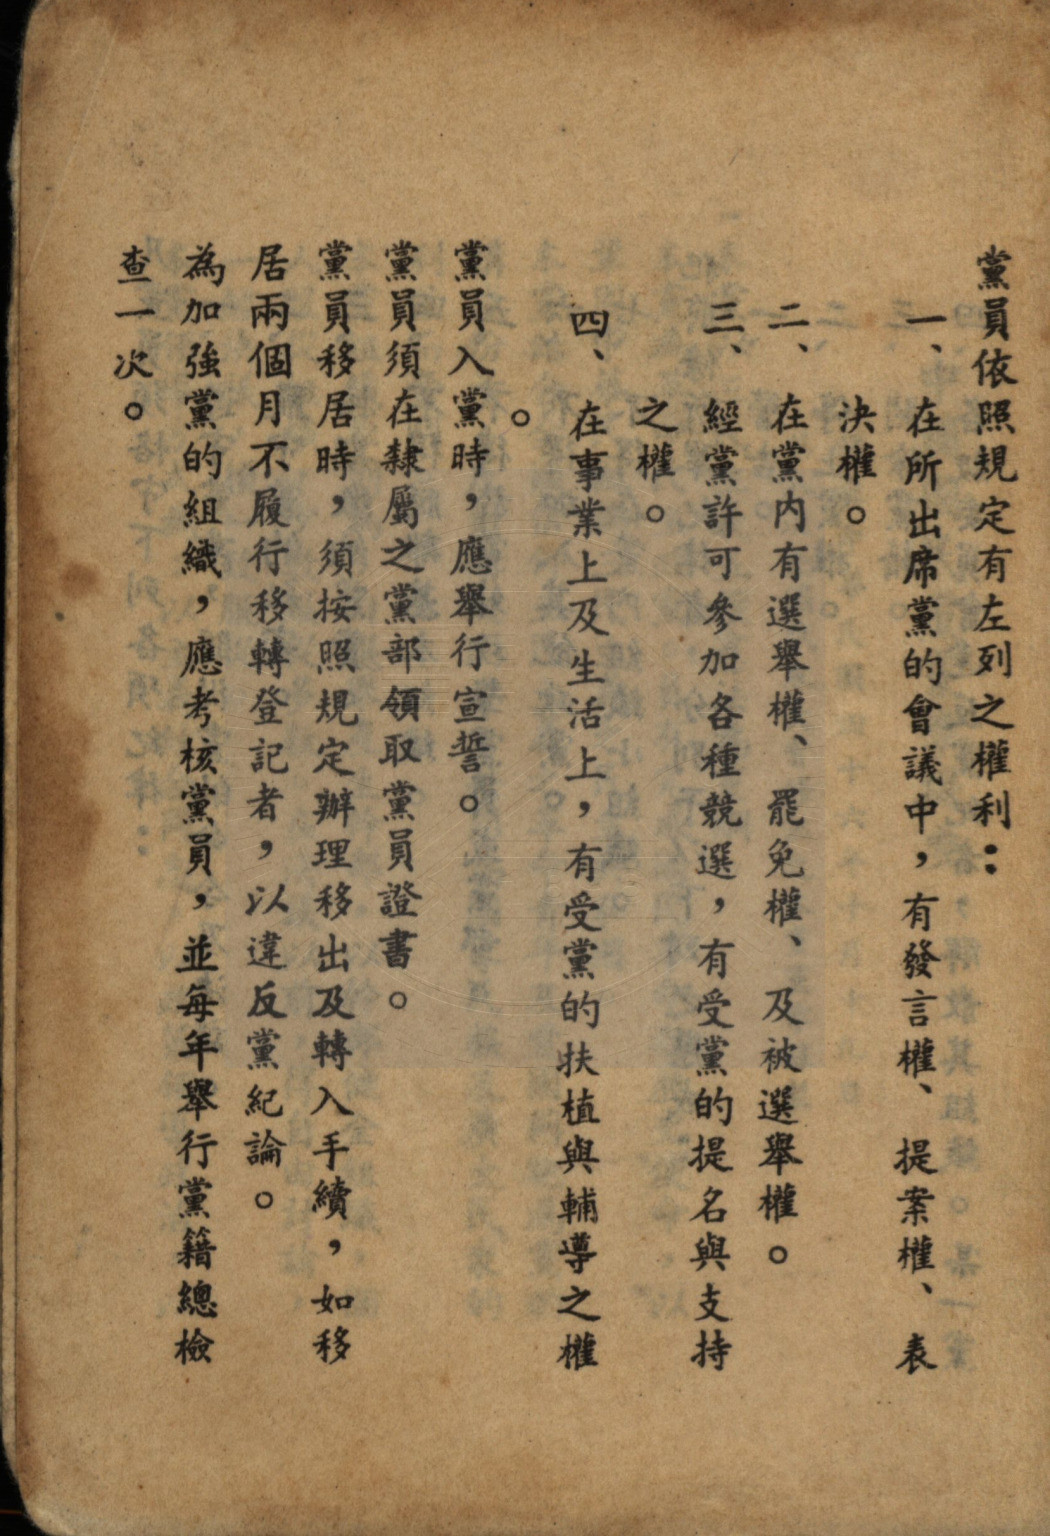 黨員依照規定有左列之權利：
一、在所出席黨的會議中，有發言權、提案權、表
決權。
二、在黨内有選舉權、罷免權、及被選舉權。
三、經黨許可參加各種競選，有受黨的提名與支持
之權。
四、在事業上及生活上，有受黨的扶植與輔導之權
。
黨員入黨時，應舉行宣誓。
黨員須在隸屬之黨部領取黨員證書。
黨員移居時，須按照規定辦理移出及轉入手續，如移
居兩個月不履行移轉登記者，以違反黨紀論。
為加強黨的組織，應考核黨員，並每年舉行黨籍總檢
查一次。